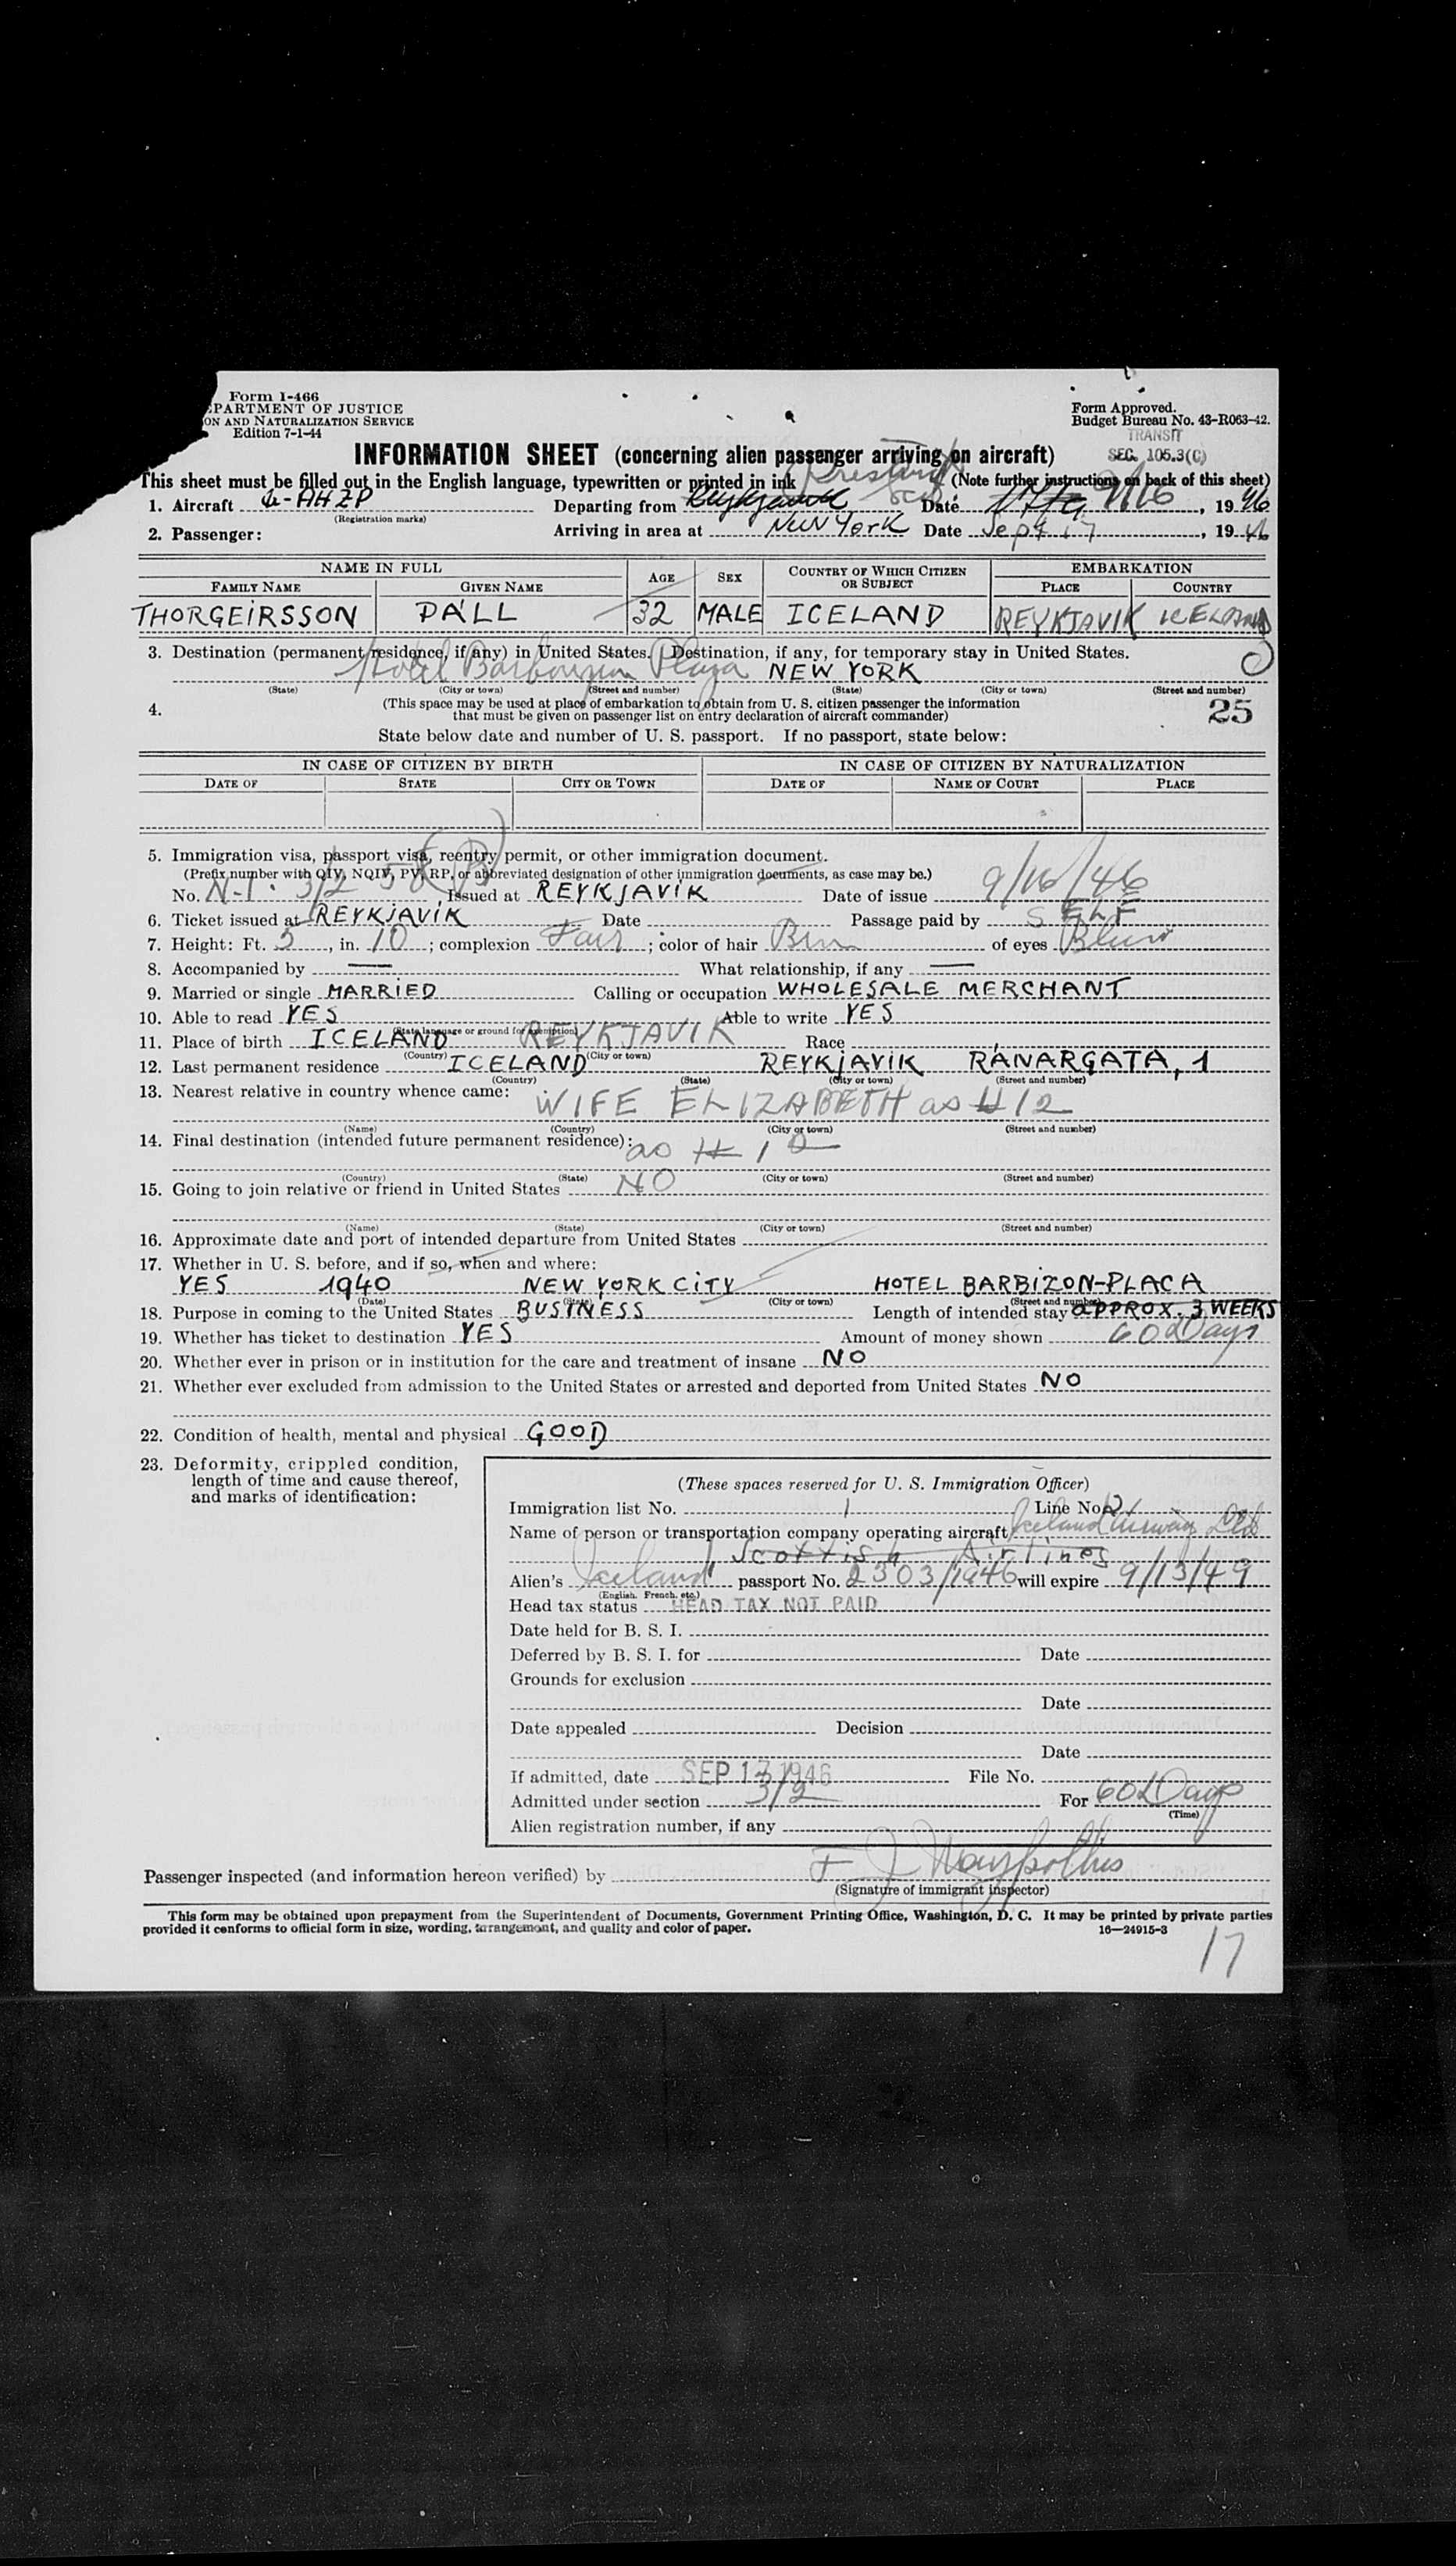 Form I-466
EPARTMENT OF JUSTICE
ON AND NATURALIZATION SERVICE
Edition 7-1-44
Form Approved.
Budget Bureau No. 43-R063-42.
TRANSIT
SEC. 105.3(C)
INFORMATION SHEET (concerning alien passenger arriving on aircraft)
This sheet must be filled out in the English language, typewritten or printed in ink (Note further instructions on back of this sheet)
1. Aircraft G-AHZP Departing from Reykjavik Date 9/16, 1946
(Registration marks)
2. Passenger: Arriving in area at New York Date Sept 17, 1946
NAME IN FULL AGE SEX COUNTRY OF WHICH CITIZEN OR SUBJECT EMBARKATION
FAMILY NAME GIVEN NAME PLACE COUNTRY
THORGEIRSSON PÁLL 32 MALE ICELAND REYKJAVIK ICELAND
3. Destination (permanent residence, if any) in United States. Destination, if any, for temporary stay in United States.
Hotel Plaza NEW YORK
(State) (City or town) (Street and number) (State) (City or town) (Street and number)
4. (This space may be used at place of embarkation to obtain from U. S. citizen passenger the information
that must be given on passenger list on entry declaration of aircraft commander)
25
State below date and number of U. S. passport. If no passport, state below:
IN CASE OF CITIZEN BY BIRTH IN CASE OF CITIZEN BY NATURALIZATION
DATE OF STATE CITY OR TOWN DATE OF NAME OF COURT PLACE
5. Immigration visa, passport visa, reentry permit, or other immigration document.
(Prefix number with QIV, NQIV, PV, RP, or abbreviated designation of other immigration documents, as case may be.)
No. 3/2 58(B) Issued at REYKJAVIK Date of issue 9/16/46
6. Ticket issued at REYKJAVIK Date Passage paid by SELF
7. Height: Ft. 5, in. 10; complexion Fair; color of hair Brn of eyes Blue
8. Accompanied by — What relationship, if any —
9. Married or single MARRIED Calling or occupation WHOLESALE MERCHANT
10. Able to read YES Able to write YES
(State language or ground for exemption)
11. Place of birth ICELAND REYKJAVIK Race
(Country) (City or town)
12. Last permanent residence ICELAND REYKJAVIK RÁNARGATA, 1
(Country) (State) (City or town) (Street and number)
13. Nearest relative in country whence came: WIFE ELIZABETH as #12
(Name) (Country) (City or town) (Street and number)
14. Final destination (intended future permanent residence): as # 12
(Country) (State) (City or town) (Street and number)
15. Going to join relative or friend in United States NO
(Name) (State) (City or town) (Street and number)
16. Approximate date and port of intended departure from United States
17. Whether in U. S. before, and if so, when and where:
YES 1940 NEW YORK CITY HOTEL BARBIZON-PLACA
(Date) (State) (City or town) (Street and number)
18. Purpose in coming to the United States BUSINESS Length of intended stay APPROX. 3 WEEKS
19. Whether has ticket to destination YES Amount of money shown 60 Days
20. Whether ever in prison or in institution for the care and treatment of insane NO
21. Whether ever excluded from admission to the United States or arrested and deported from United States NO
22. Condition of health, mental and physical GOOD
23. Deformity, crippled condition,
length of time and cause thereof,
and marks of identification:
(These spaces reserved for U. S. Immigration Officer)
Immigration list No. 1 Line No.
Name of person or transportation company operating aircraft Iceland Airways Ltd
Scottish Airlines
Alien's Iceland passport No. 2303/1946 will expire 9/13/49
(English, French, etc.)
Head tax status HEAD TAX NOT PAID
Date held for B. S. I.
Deferred by B. S. I. for Date
Grounds for exclusion
Date
Date appealed Decision
Date
If admitted, date SEP 17 1946 File No.
Admitted under section 3/2 For 60 Days
(Time)
Alien registration number, if any
Passenger inspected (and information hereon verified) by F J
(Signature of immigrant inspector)
This form may be obtained upon prepayment from the Superintendent of Documents, Government Printing Office, Washington, D. C. It may be printed by private parties
provided it conforms to official form in size, wording, arrangement, and quality and color of paper. 16—24915-3
17